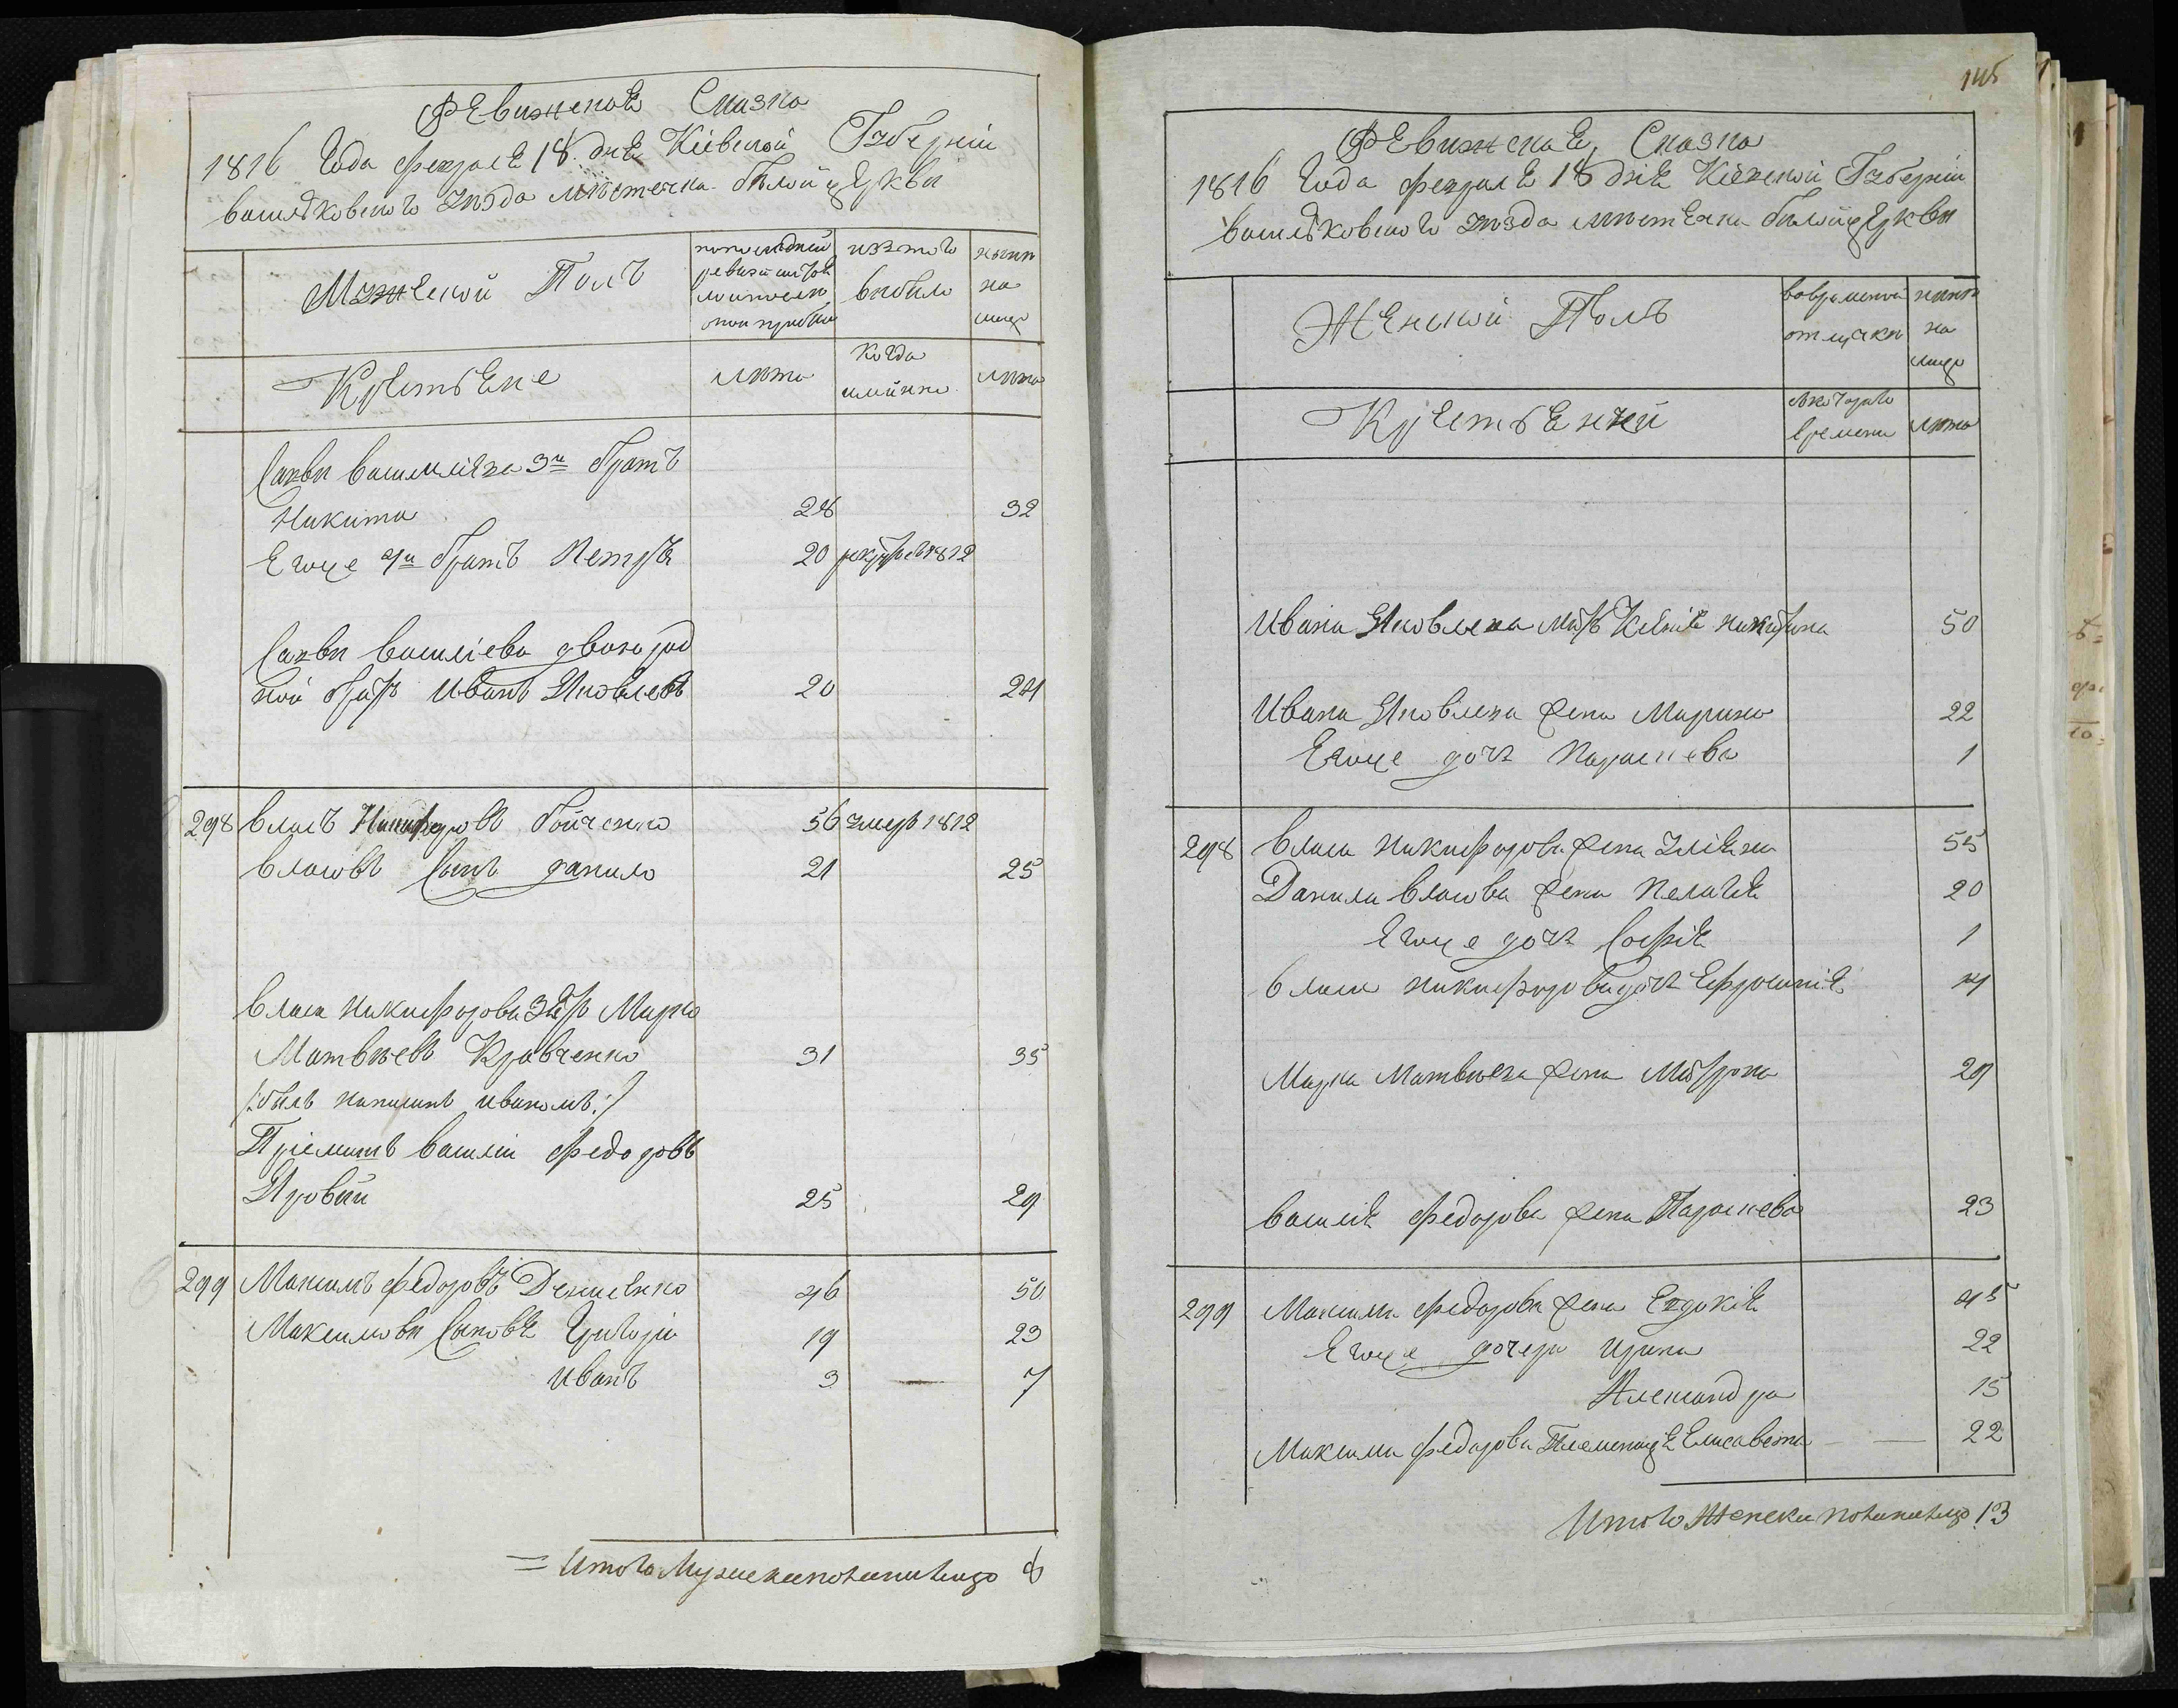 Ревижская Сказка
1816 Года февраля 18 дня Кіевской Губерніи
васильковского уезда местечка белой церкви
Мужеской Полъ
по последней
ревизіи состояло
и после
оной прибыло
изътого
выбыло
ныне
на
лицо
Крестьяне
лета
Когда
именно
лета
Савы васильева 3й братъ
Никита 28 32
Егоже 4й братъ Петръ 20 рекрут 1812
Савы василіева двоюрод
ной братъ Иванъ Яковлевъ 20 24
298 власъ Никифоровъ бойченко 56 умеръ 1812
власовъ Сынъ данило 21 25
власа никифорова Зять Марко
Матвеевъ Кравченко 31 35
/:былъ написанъ иваномъ:/
Пріемышъ василіи федоровъ
Яровый 25 29
299 Максимъ федоровъ Денисенко 46 50
Максимовы Сыновья Григоріи 19 23
иванъ 3 — 7
= Итого Мужеска пола на лицо 8
145
Ревижская Сказка
1816 Года февраля 18 дня Кіевской Губерніи
васильковского уезда местечка белой церкви
Женской Полъ
вовременной
отлучки
ныне
на
лицо
Крестьянки
скоторого
времени
лета
Ивана Яковлева мать Ксенія никитина 50
Ивана Яковлева жена Марина 22
Егоже дочь Параскева 1
298 власа никифорова жена 55
Данила власова жена Пелагія 20
Егоже дочь Софія 1
власа никифорова дочь Ефросинія 14
Марка Матвеева жена Матрона 29
василія федорова жена Параскева 23
299 Максима федорова жена Евдокія 45
Егоже дочери ирина 22
Александра 15
Максима федорова Племеница Елисавета — — 22
Итого Женска пола на лицо 13